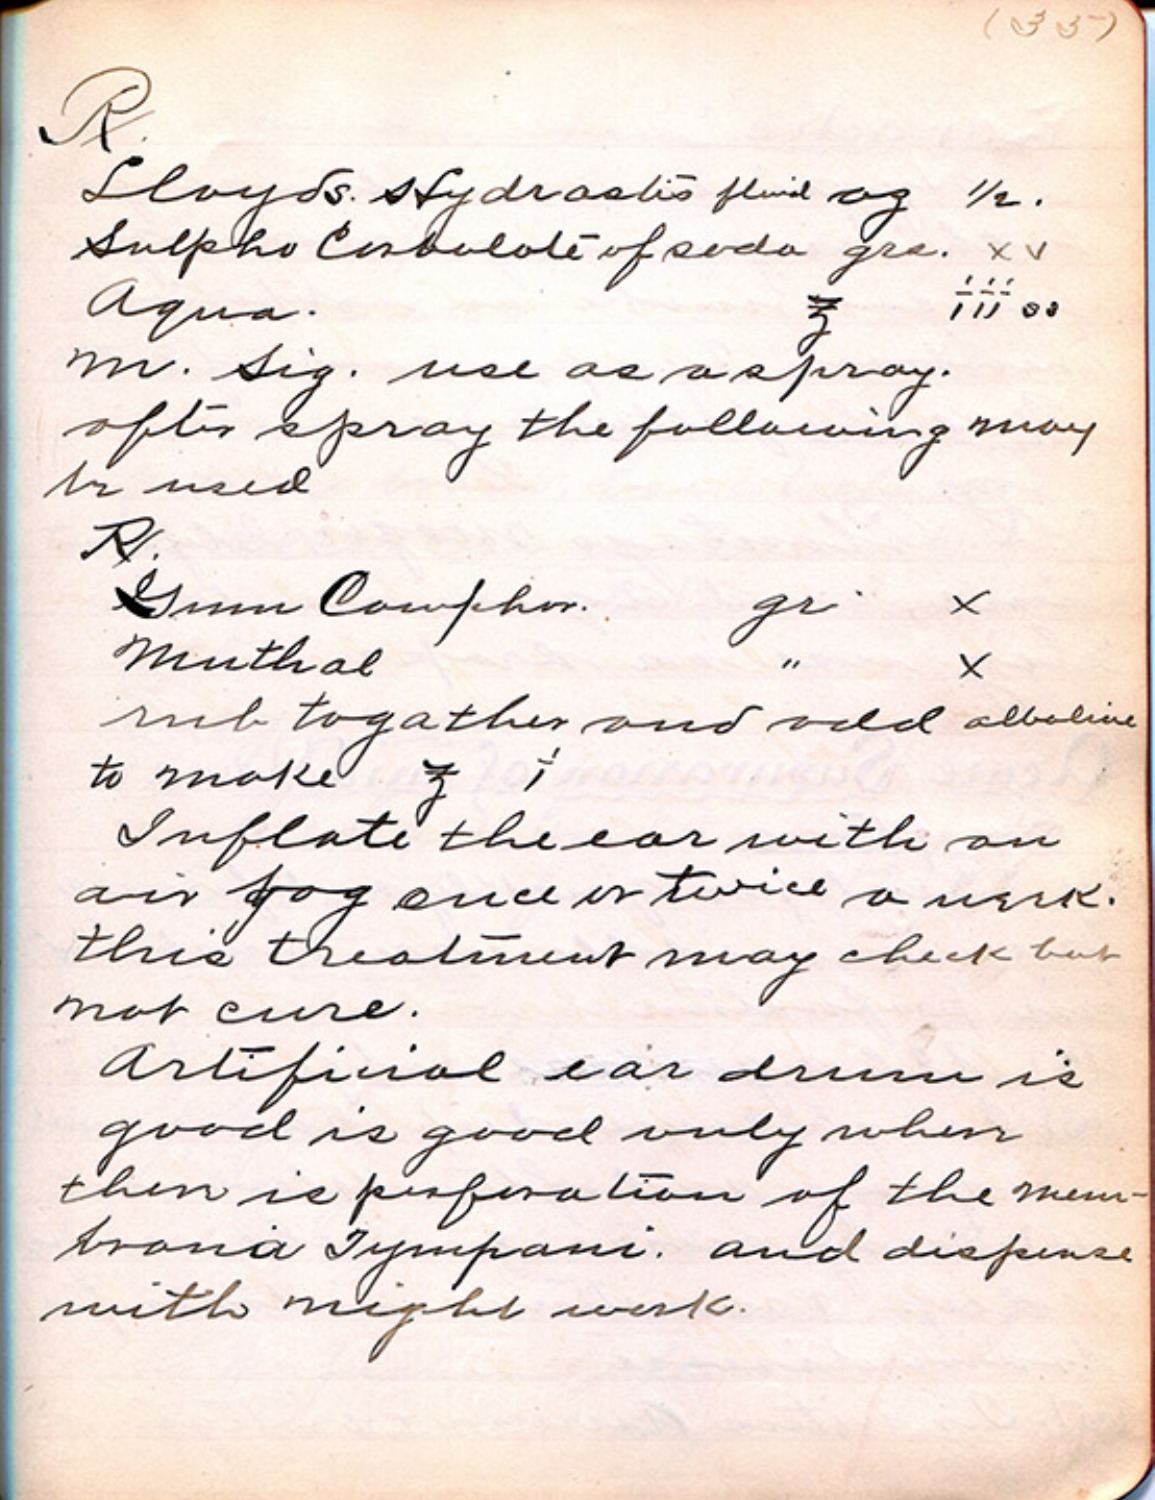 (35)
℞.
Lloyds. Hydrastis fluid oz 1/2.
Sulpho Carbolate of soda grs. xv
Aqua. ℥ iii ss
M. Sig. use as a spray.
after spray the following may
be used
℞.
Gum Camphor. gr. x
Menthal " x
rub togather and add alboline
to make ℥ i
Inflate the ear with an
air bag once or twice a week.
this treatment may check but
not cure.
Artificial ear drum is
good is good only when
there is perforation of the mem-
brana Tympani. and dispense
with night work.